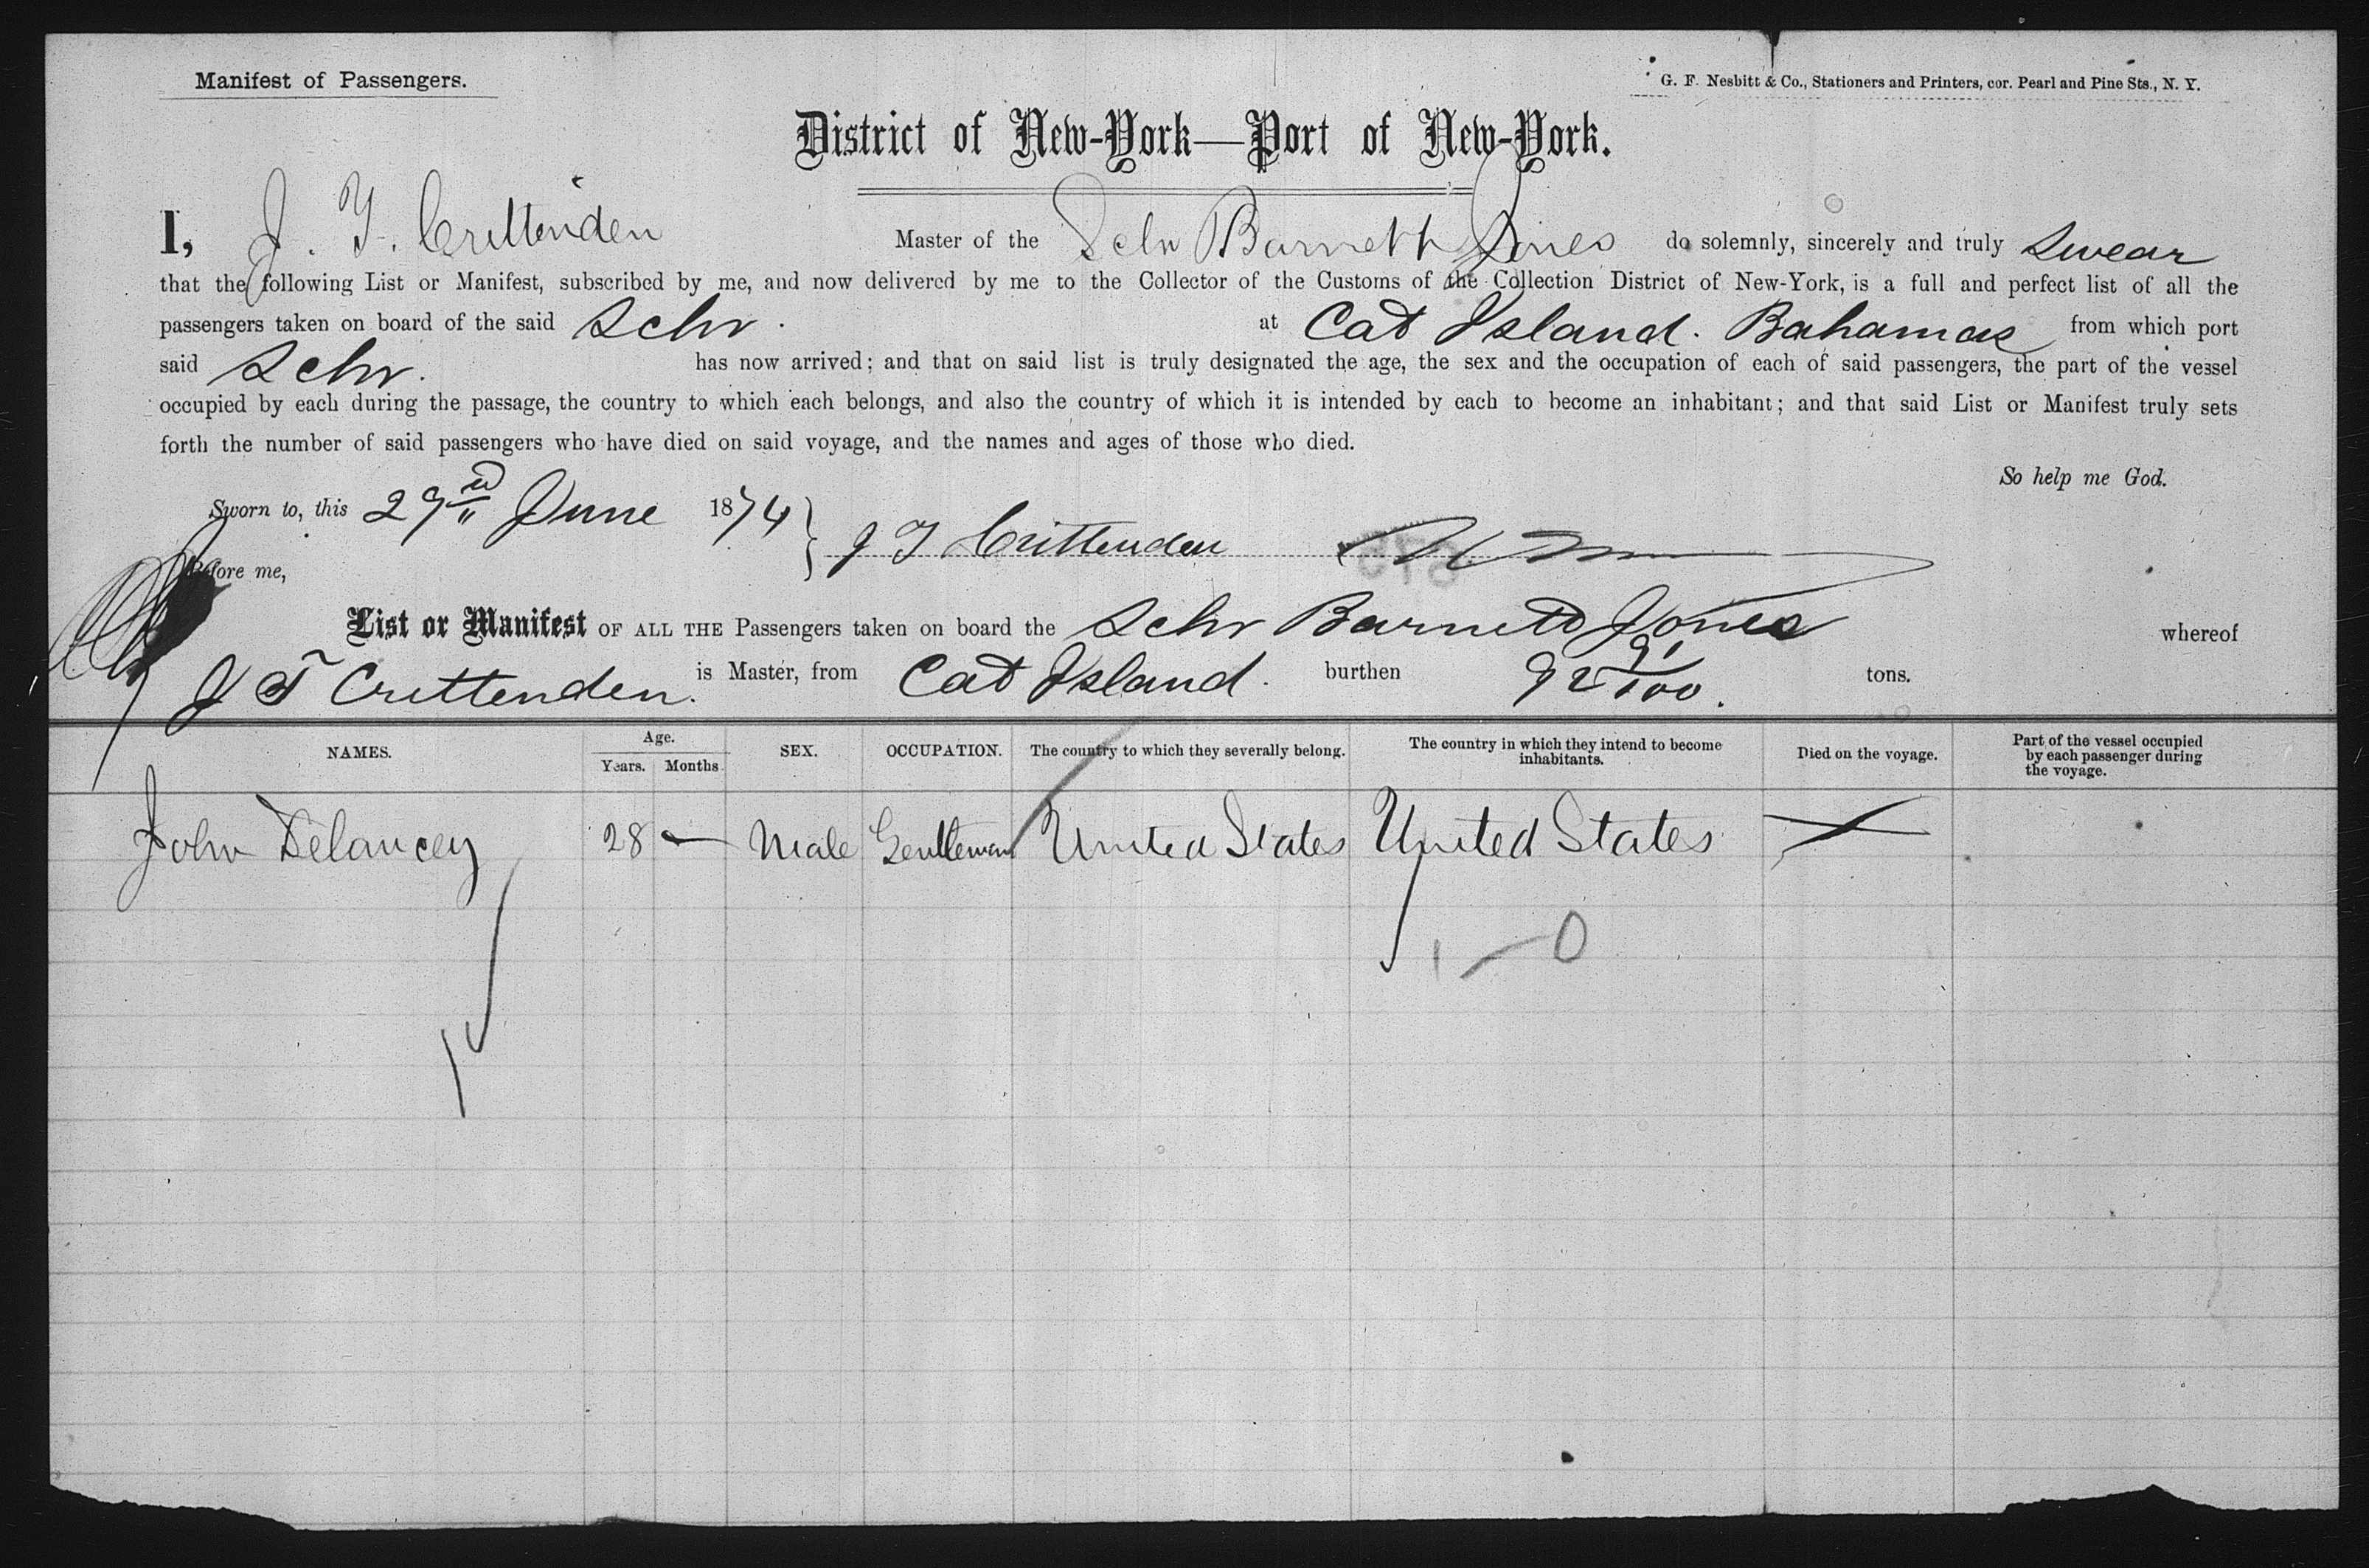 Manifest of Passengers.
G. F. Nesbitt & Co., Stationers and Printers, cor. Pearl and Pine Sts., N. Y.
District of New-York—Port of New-York.
I, J. T. Crittenden Master of the Schr Barnett Jones do solemnly, sincerely and truly swear
that the following List or Manifest, subscribed by me, and now delivered by me to the Collector of the Customs of the Collection District of New-York, is a full and perfect list of all the
passengers taken on board of the said Schr. at Cat Island. Bahamas from which port
said Schr. has now arrived; and that on said list is truly designated the age, the sex and the occupation of each of said passengers, the part of the vessel
occupied by each during the passage, the country to which each belongs, and also the country of which it is intended by each to become an inhabitant; and that said List or Manifest truly sets
forth the number of said passengers who have died on said voyage, and the names and ages of those who died.
So help me God.
Sworn to, this 29 June 1874 } J T Crittenden
Before me,
List or Manifest OF ALL THE Passengers taken on board the Schr Barnett Jones whereof
J T Crittenden. is Master, from Cat Island. burthen 92 91/100. tons.
NAMES. Age. Years. Months. SEX. OCCUPATION. The country to which they severally belong. The country in which they intend to become inhabitants. Died on the voyage. Part of the vessel occupied by each passenger during the voyage.
John Delancey 28 — Male Gentleman United States United States
1 — 0